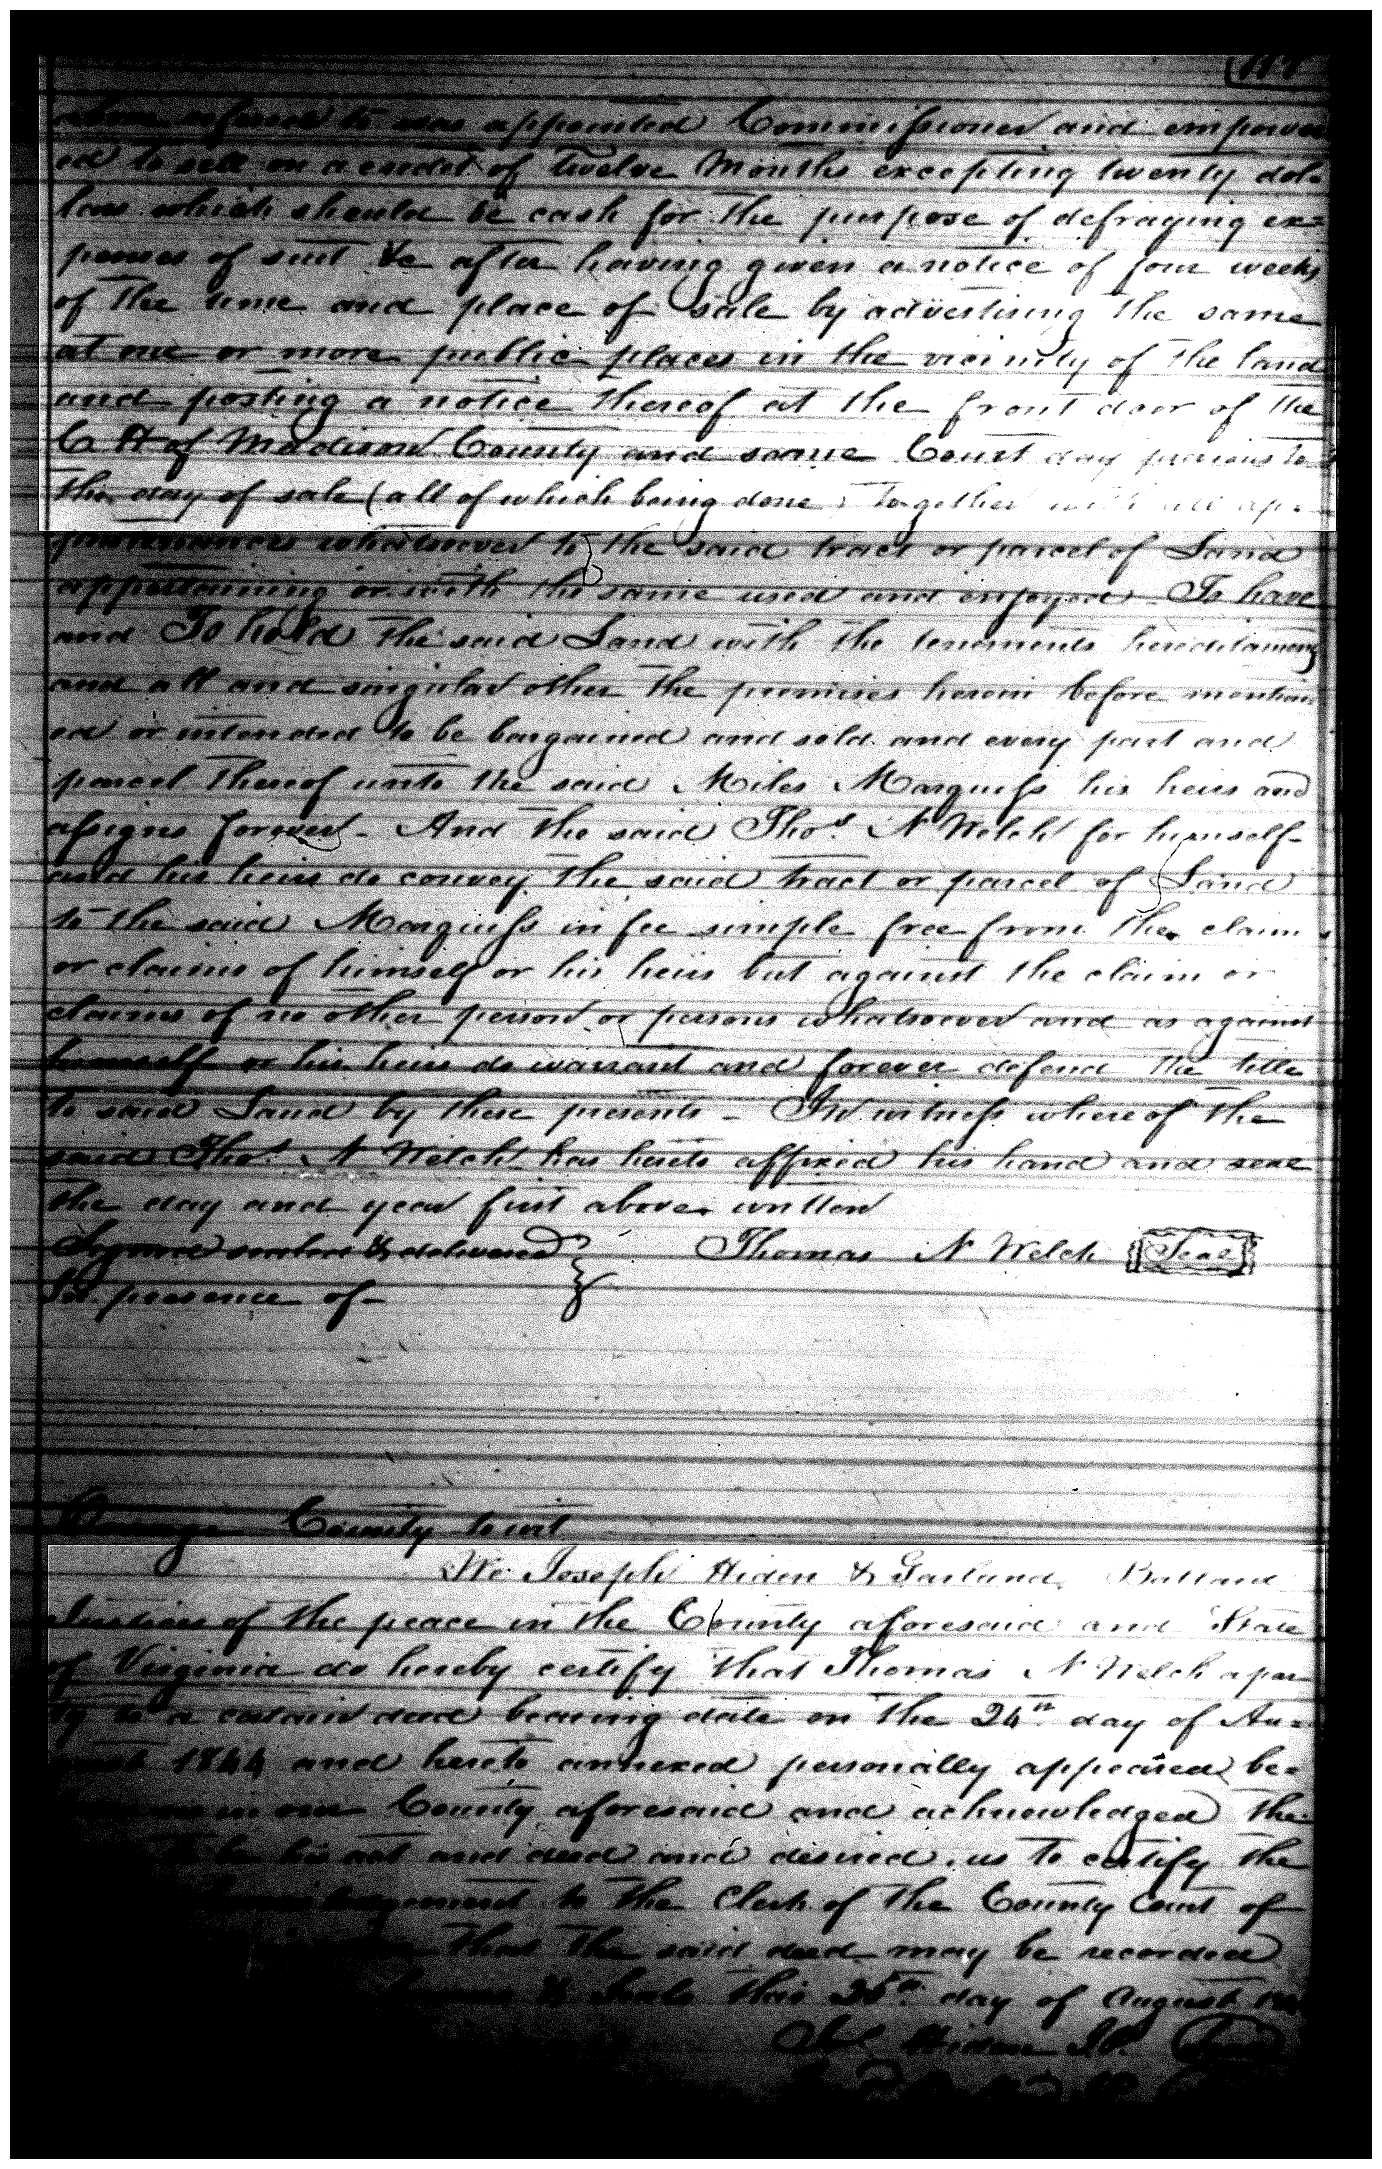 above refered to was appointed Commissioner and empower
ed to sell on a credit of twelve Months excepting twenty dol-
lars which should be cash for the purpose of defraying ex=
penses of suit &c after having given a notice of four weeks
of the time and place of sale by advertising the same
at one or more public places in the vicinity of the land
and posting a notice thereof at the front door of the
C H of Madison County and some Court day previous to
the day of sale (all of which being done) together with all ap-
purtenances whatsoever to the said tract or parcel of Land
appertaining or with the same used and enjoyed - To have
and To hold the said Land with the tenements hereditaments
and all and singular other the premises herein before mention
ed or intended to be bargained and sold and every part and
parcel thereof unto the said Miles Marquiss his heirs and
assigns forever - And the said Thos. N Welch for himself
and his heirs do convey the said tract or parcel of Land
to the said Marquiss in fee simple free from the claim
or claims of himself or his heirs but against the claim or
claims of no other person or persons whatsoever and as against
himself or his heirs do warrant and forever defend the title
to said Land by these presents - In witness whereof the
said Thos. N Welch has hereto affixed his hand and seal
the day and year first above written
Signed sealed & delivered Thomas N Welch Seal
In presence of
Orange County to wit
We Joseph Hiden & Garland Ballard
Justices of the peace in the County aforesaid and State
of Virginia do hereby certify that Thomas N Welch a par
ty to a certain deed bearing date on the 24th day of Au=
gust 1844 and hereto annexed personally appeared be=
in our County aforesaid and acknowledged the
to be his act and deed and desired us to certify the
to the Clerk of the County Court of
that the said deed may be recorded
& Seals this 26th day of August
Jos Hiden J.P. Seal